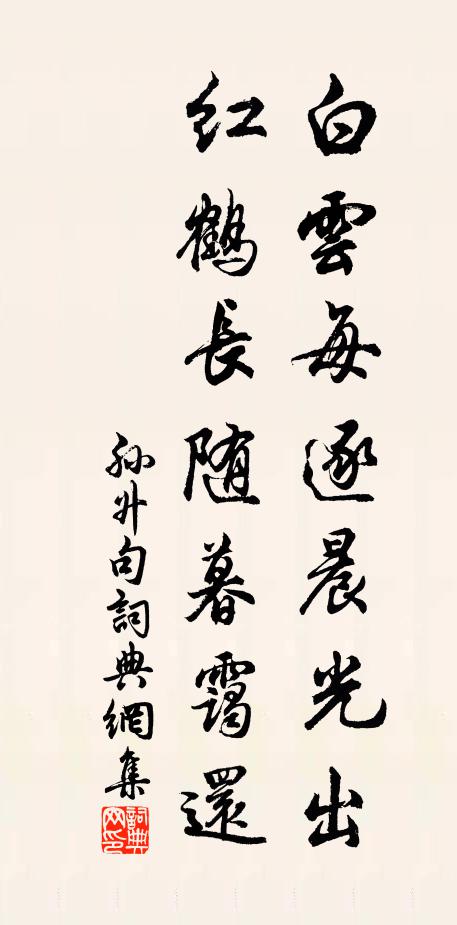 白雲每逐晨光出
紅鶴長随暮靄還
孫升句詞典網集
詞典網印